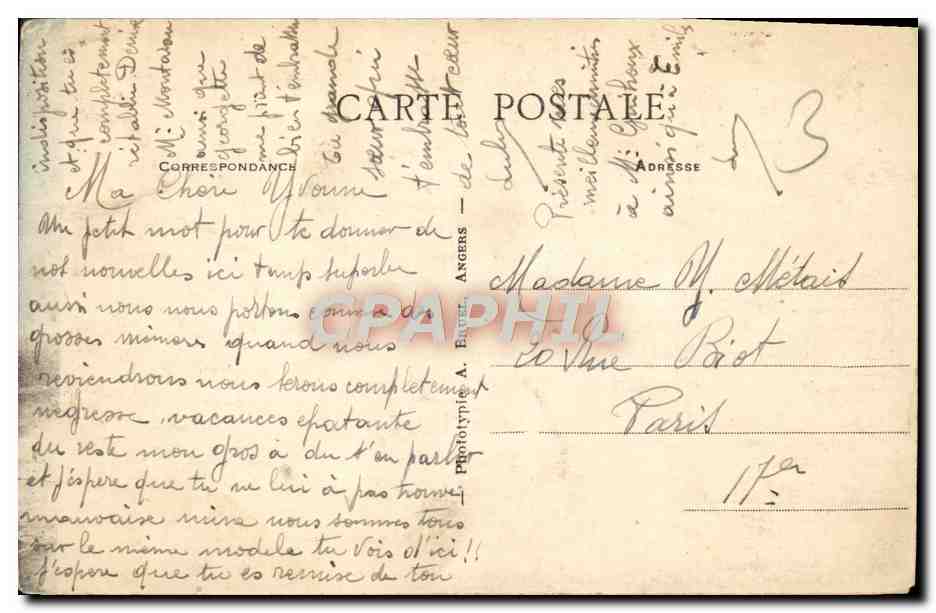 CARTE POSTALE
CORRESPONDANCE
ADRESSE
Ma Chère Yvonne
Un petit mot pour te donner de
nos nouvelles ici temps superbe
aussi nous nous portons comme des
grosses mémères quand nous
reviendrons nous serons complètement
négresse, vacances epatante
du reste mon gros à du t'en parler
et j'éspere que tu ne lui à pas trouver
mauvaise mine nous sommes tous
sur le même modele tu vois d'ici!!
J'éspere que tu es remise de ton
indisposition
et que tu es
complètement
rétablie Denise
Mr
ainsi que
Georgette
me prient de
bien t'embrasser
Ta grande
sœur qui
t'embrasse
de tout cœur
Présente mes
meilleures amitiés
à Mr
ainsi qu'a Emile
Phototypie A. BRUEL, ANGERS
Madame Y. Métais
20 Rue Biot
Paris
17er
13
CPAPHIL